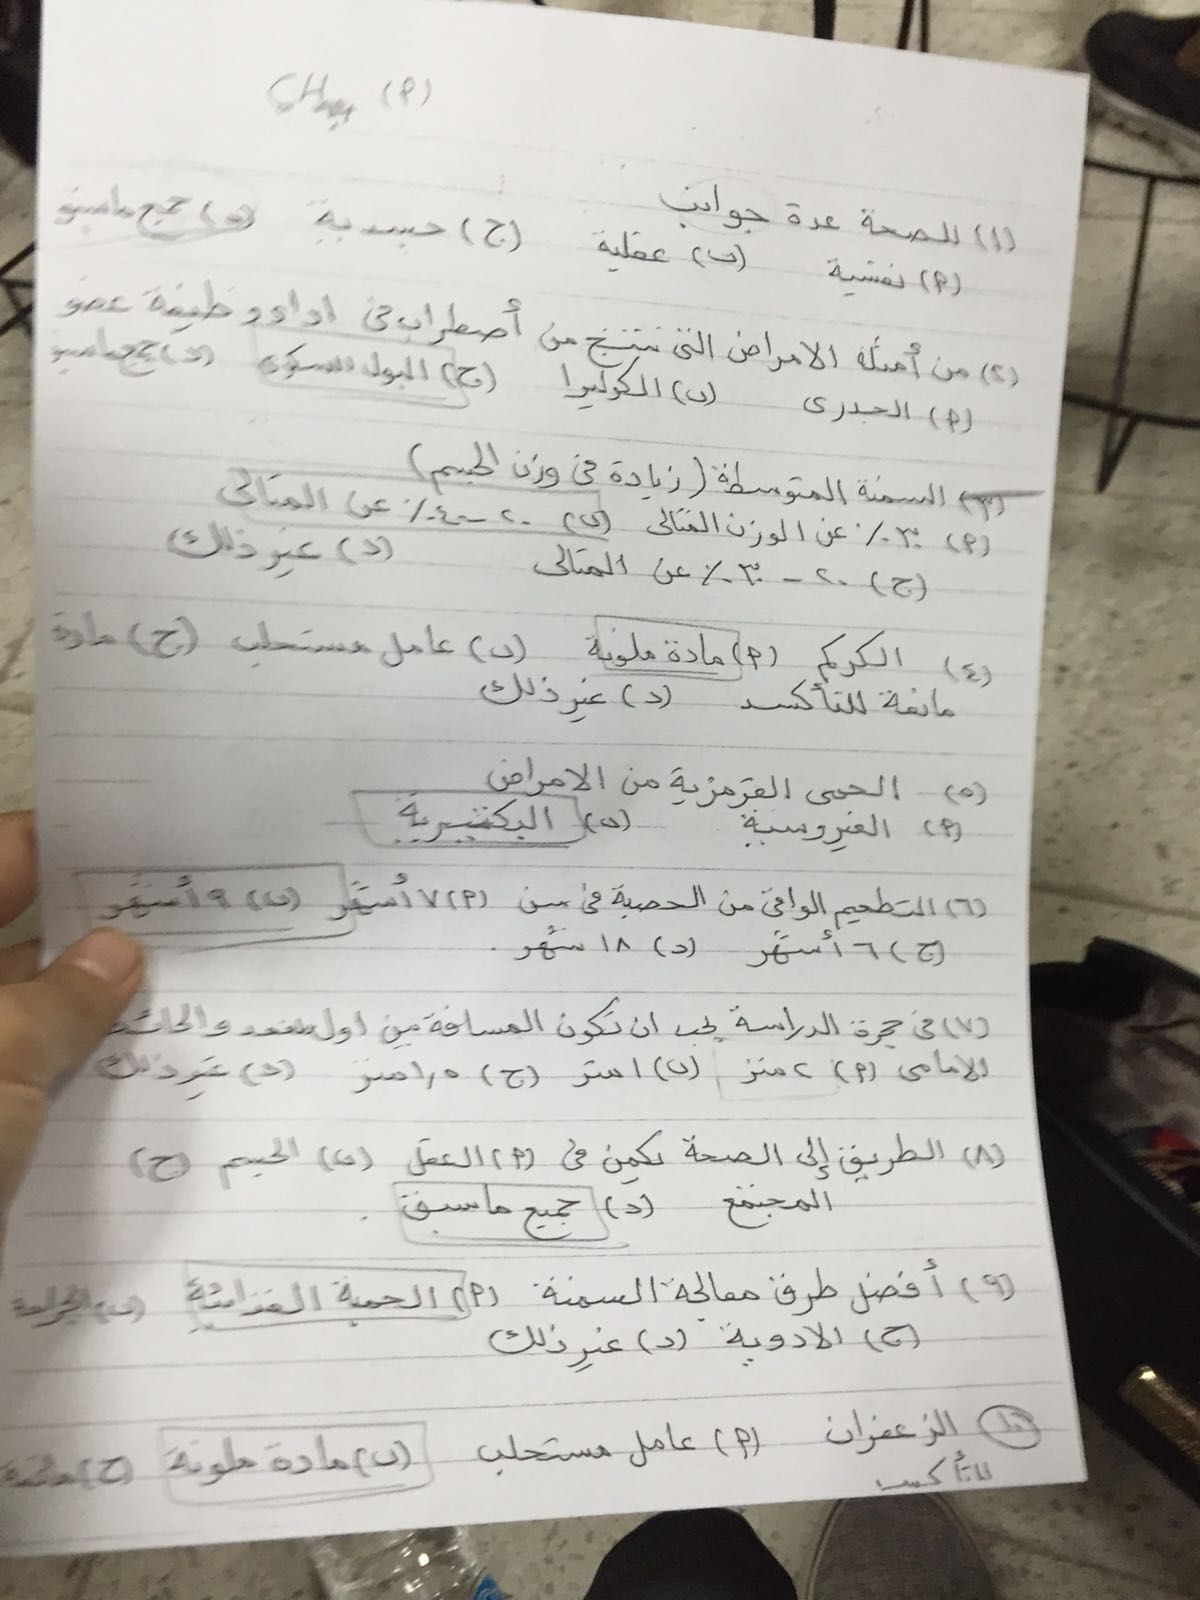 (أ)
(١) للصحة عدة جوانب
(أ) نفسية (ب) عقلية (ج) جسدية (د) جميع ماسبق
(٢) من أمثلة الامراض التى تنتج من أضطراب فى اداء وظيفة عضو
(أ) الجدرى (ب) الكوليرا (ج) البول السكرى (د) جميع ماسبق
(٣) السمنة المتوسطة (زيادة فى وزن الجسم)
(أ) ٣٠٪ عن الوزن المثالى (ب) ٢٠-٤٠٪ عن المثالى
(ج) ٢٠-٣٠٪ عن المثالى (د) غير ذلك
(٤) الكركم (أ) مادة ملونة (ب) عامل مستحلب (ج) مادة
مانعة للتأكسد (د) غير ذلك
(٥) الحمى القرمزية من الامراض
(أ) الفيروسية (ب) البكتيرية
(٦) التطعيم الواقى من الحصبة فى سن (أ) ٧ أشهر (ب) ٩ أشهر
(ج) ٦ أشهر (د) ١٨ شهر.
(٧) فى حجرة الدراسة يجب ان تكون المسافة بين اول مقعد والحائط
الامامى (أ) ٢ متر (ب) ١ متر (ج) ١,٥ متر (د) غير ذلك
(٨) الطريق إلى الصحة يكمن فى (أ) العقل (ب) الجسم (ج)
المجتمع (د) جميع ماسبق.
(٩) أفضل طرق معالجة السمنة (أ) الحمية الغذائية (ب) الجراحة
(ج) الادوية (د) غير ذلك
(١٠) الزعفران (أ) عامل مستحلب (ب) مادة ملونة (ج) مانعة
للتأكسد